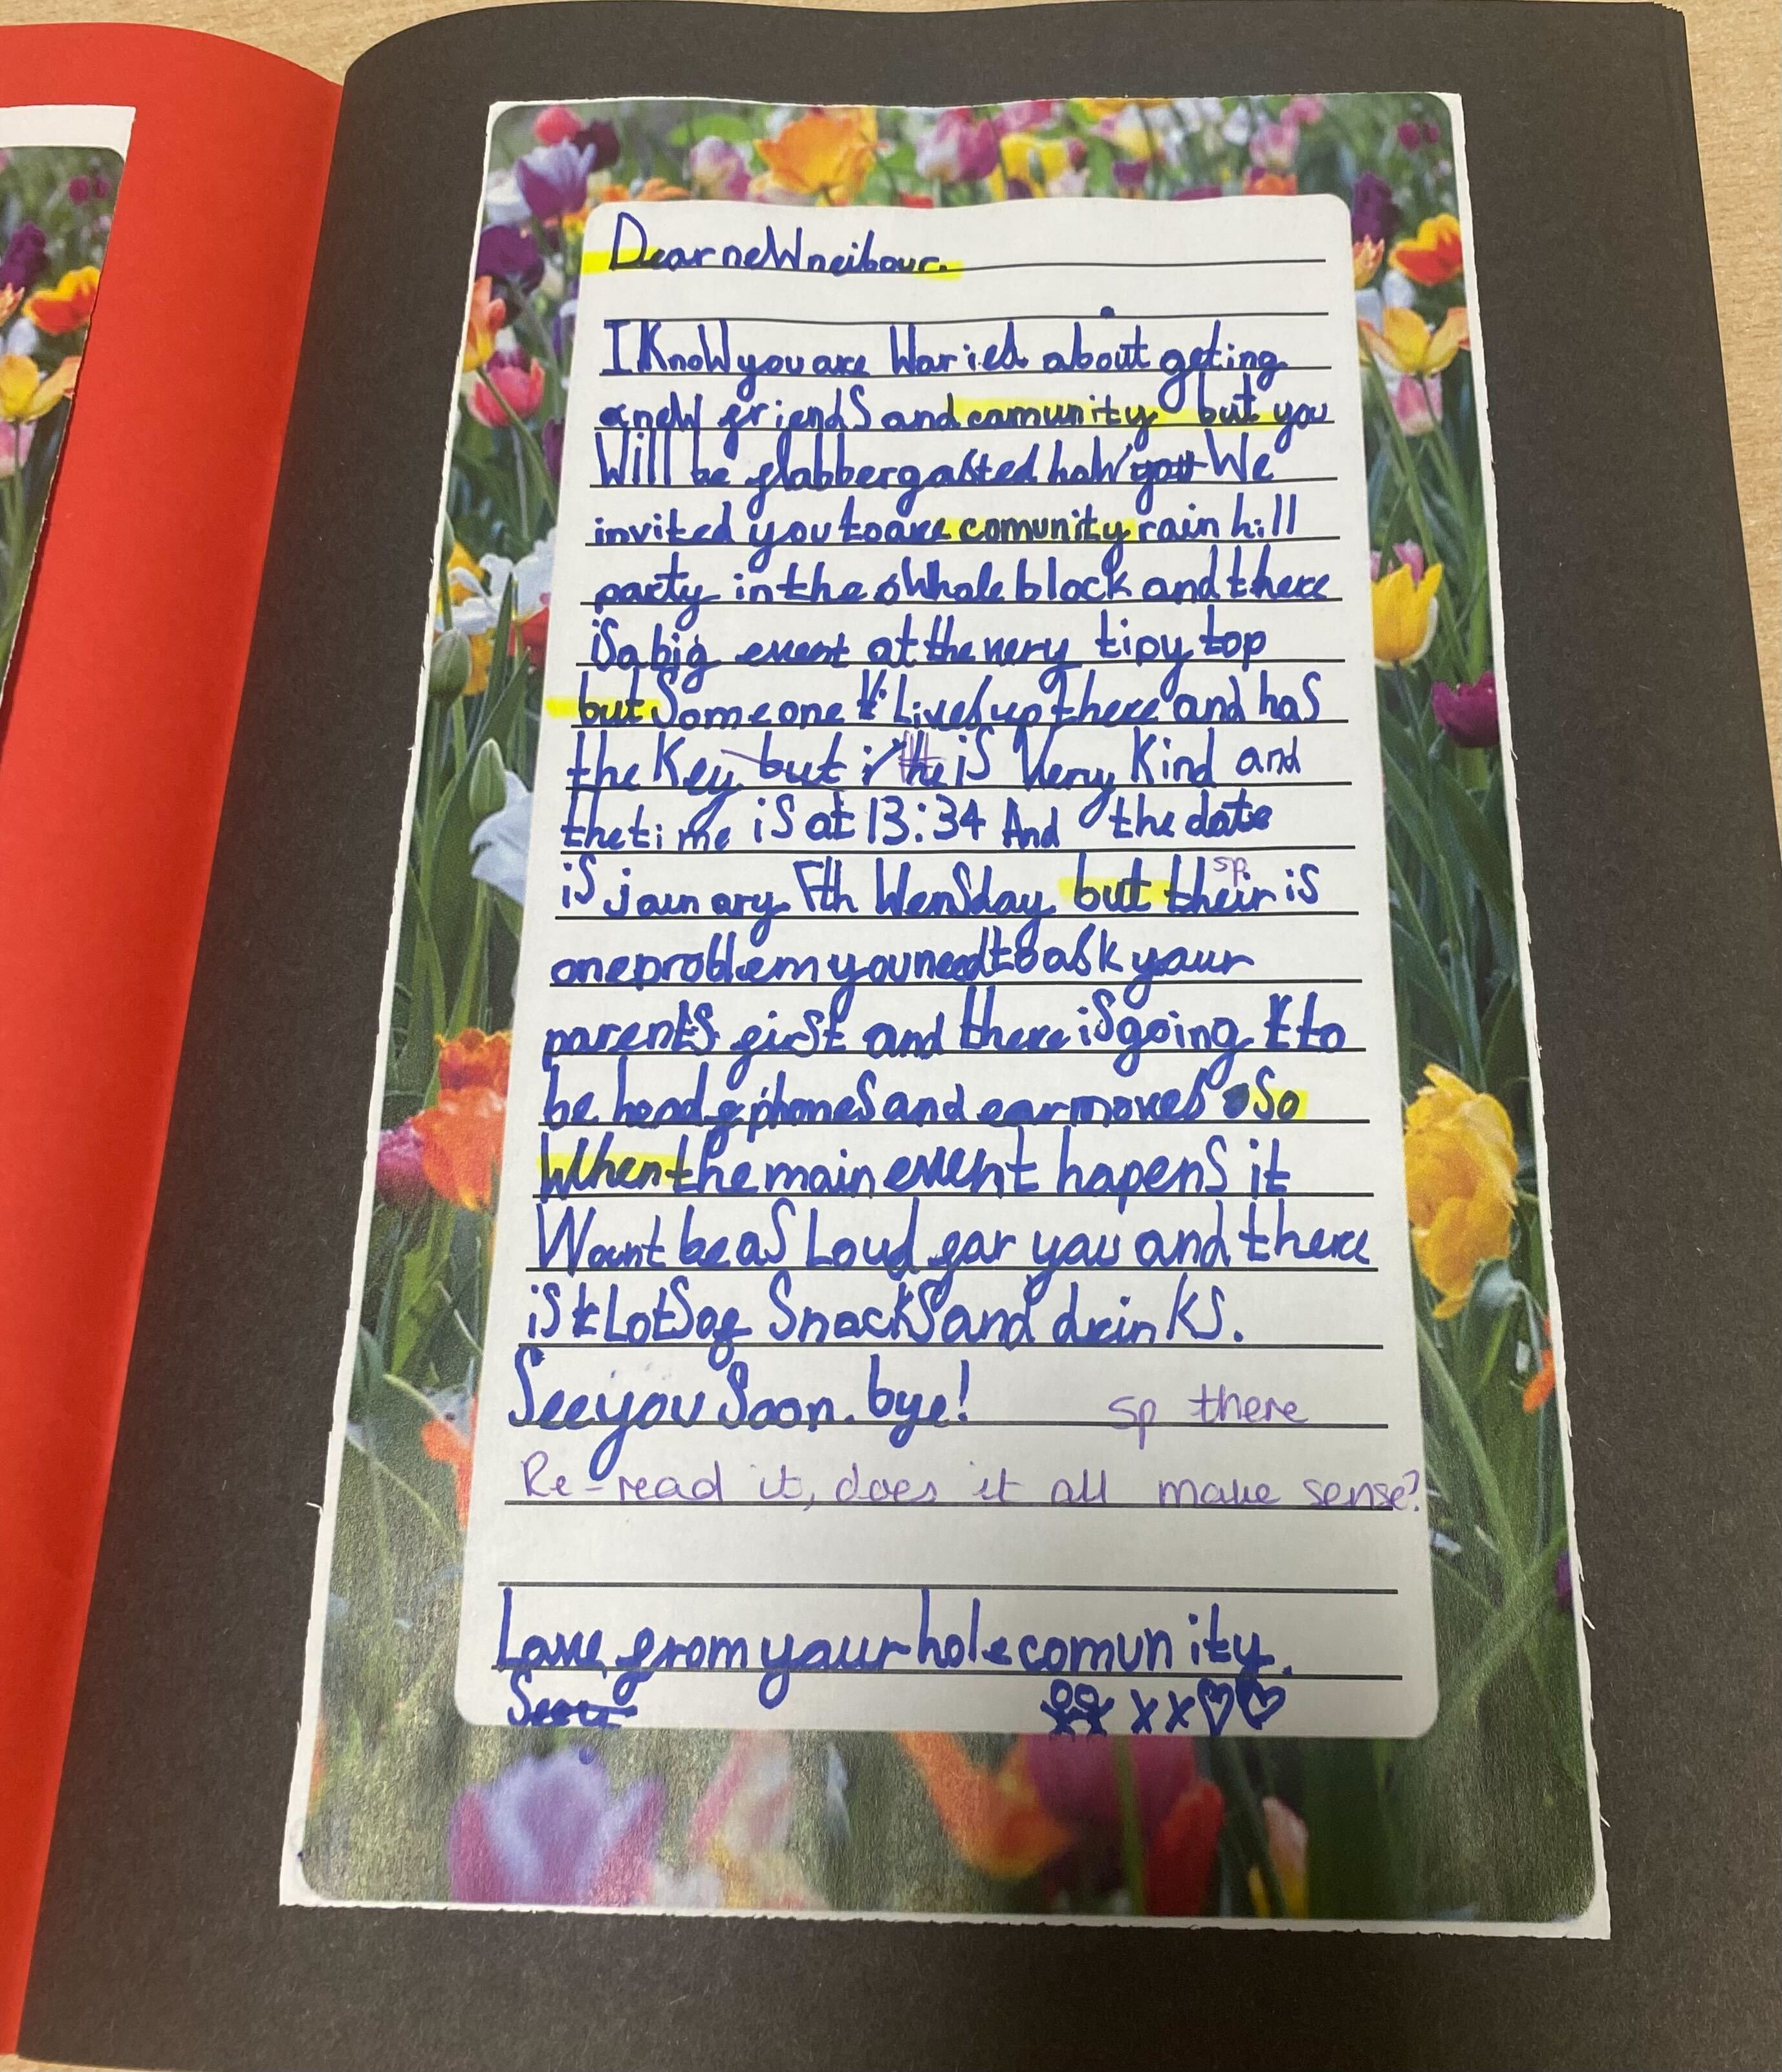 Dear new neibour.
I Know you are Waried about geting
a new friends and comunity but you
Will be flabbergasted how you We
invited you to are comunity rain hill
party in the whole block and there
is a big event at the very tipy top
but Someone Lives up there and has
the Key but he is Very Kind and
the time is at 13:34 And the date
is jaunary 7th Wensday but their is
sp
one problem you need to ask your
parents first and there is going to
be head phones and earmoves So
When the main event hapens it
Wount be as Loud for you and there
is Lots of Snacks and drinks.
See you Soon. bye!
sp there
Re-read it, does it all make sense?
Love from your hole comunity.
xx